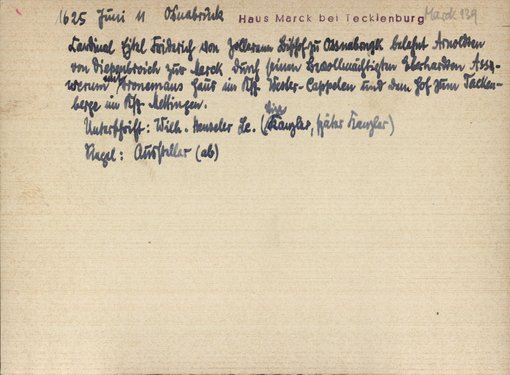 1625 Juni 11 Osnabrück Haus Marck bei Tecklenburg Marck 139
Cardinal Eytel Friderich von Zolleren Bischof zu Ossnabrugk belehnt Arnoldten
von Diepenbroich zur Marck durch seinen Bevollmächtigten Eberhardten
mit Kronemans Haus im Ksp. Wester-Cappelen und dem Hof zum Tacken-
berge im Ksp. Mettingen.
Unterschrift: Wilh. (Vize
Kanzler, später Kanzler)
Siegel: Aussteller (ab)